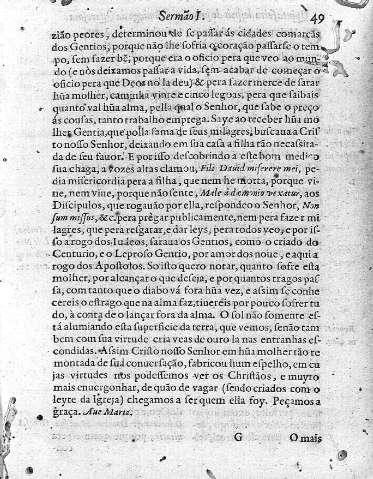 Sermão I. 49
zião peores, determinou de se passar ás cidades comarcãs
dos Gentios, porque não lhe sofria o coração passarse o tem-
po, sem fazer bẽ, porque era o oficio pera que veo ao mun-
do (e nòs deixamos passar a vida, sem acabar de começar o
oficio pera que Deos nola deu) & pera fazer merce de sarar
hũa molher, caminha vinte e cinco legoas, pera que saibais
quanto val hũa alma, pella qual o Senhor, que sabe o preço
ás cousas, tanto trabalho emprega. Saye ao receber hũa mo
lher Gentia, que polla fama de seus milagres, buscaua a Cris
to nosso Senhor, deixando em sua casa a filha tão necessita-
da de seu fauor. E por isso descobrindo a este bom medico
sua chaga, a vozes altas clamou, Fili Dauid miserere mei, pe-
dia misericordia pera a filha, que nem he morta, porque vi-
ue, nem viue, porque não sente, Male à dæmonio vexatur, aos
Discipulos, que rogauão por ella, respondeo o Senhor, Non
sum missus, &c. pera prègar publicamente, nem pera fazer mi
lagres, que pera resgatar, e dar leys, pera rodos veo, e por is-
so a rogo dos Iudeos, saraua os Gentios, como o criado do
Centurio, e o Leproso Gentio, por amor dos noue, e aqui a
rogo dos Apostolos. So isto quero notar, quanto sofre esta
molher, por alcançar o que deseja, e por quantos tragos pas
sa, com tanto que o diabo và fora hũa vez, e assim se conhe
cereis o estrago que na alma faz, tiuereis por pouco sofrer tu
do, à conta de o lançar fora da alma. O sol não somente es-
tà alumiando esta superficie da terra, que vemos, senão tam
bem com sua virtude cria veas de ouro la nas entranhas es-
condidas. Assim Cristo nosso Senhor em hũa molher tão re
montada de sua conuersação, fabricou hum espelho, em cu
jas virtudes nos podessemos ver os Christãos, e muyto
mais enuergonhar, de quão de vagar (sendo criados com o
leyte da Igreja) chegamos a ser quem ella foy. Peçamos a
graça. Aue Maria.
G O mais